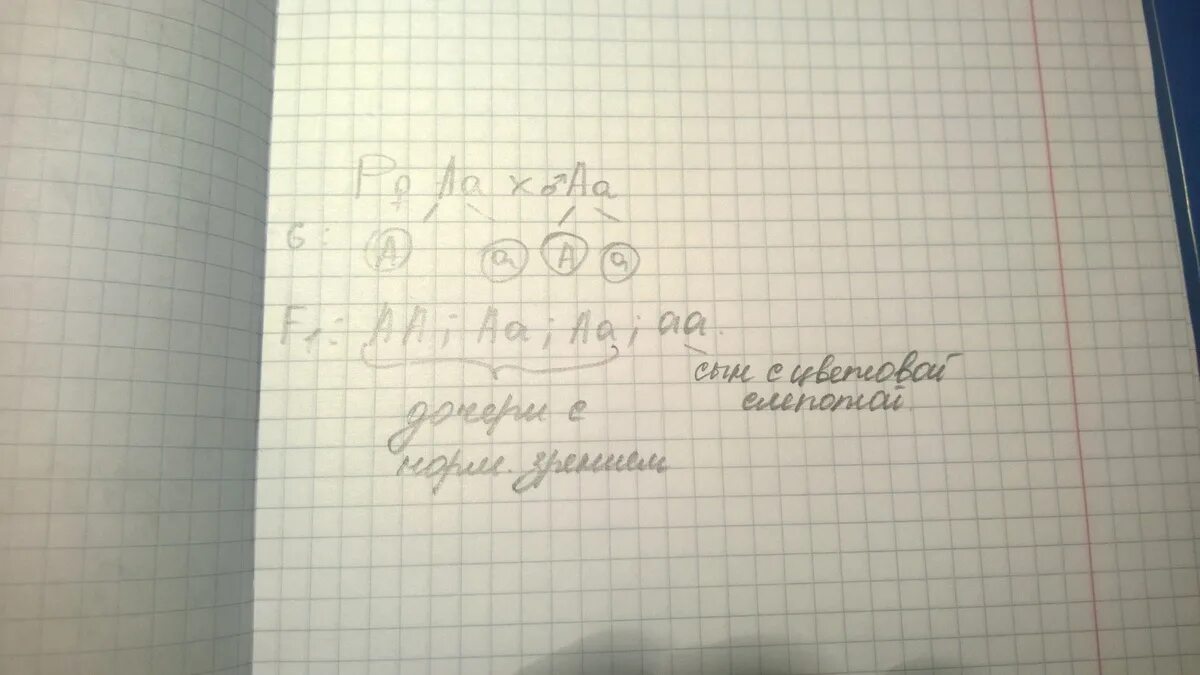 P ♀ Aa × ♂ Aa
G: A a A a
F₁: AA; Aa; Aa; aa.
сын с цветовой
слепотой
дочери с
норм. зрением